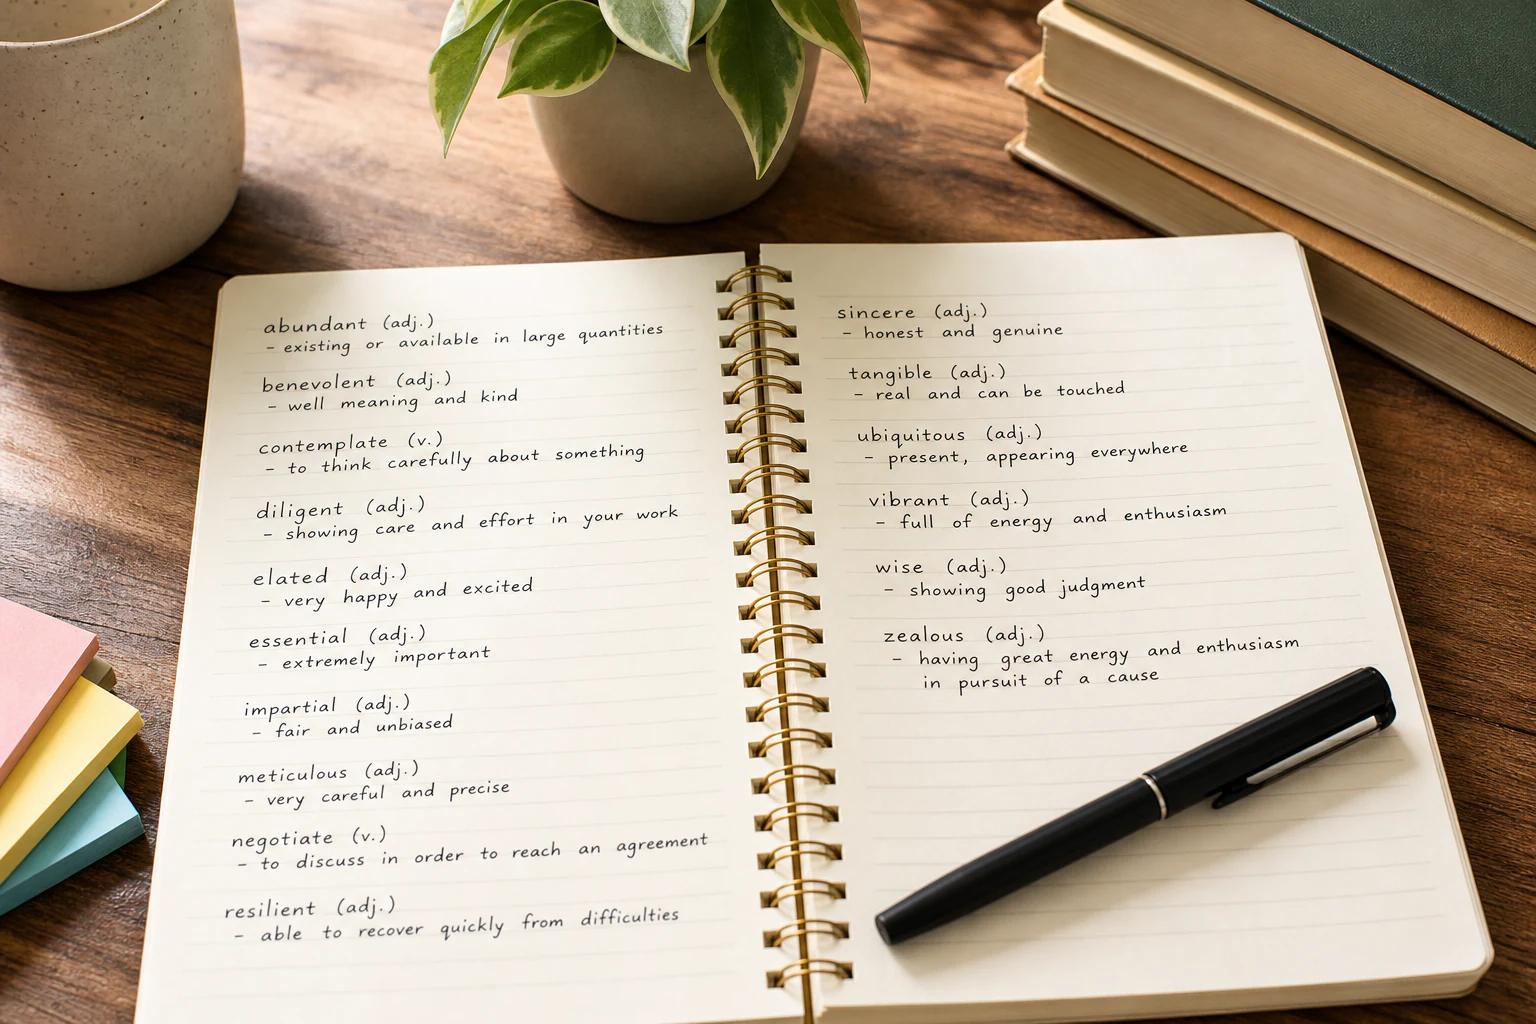 abundant (adj.)
- existing or available in large quantities
benevolent (adj.)
- well meaning and kind
contemplate (v.)
- to think carefully about something
diligent (adj.)
- showing care and effort in your work
elated (adj.)
- very happy and excited
essential (adj.)
- extremely important
impartial (adj.)
- fair and unbiased
meticulous (adj.)
- very careful and precise
negotiate (v.)
- to discuss in order to reach an agreement
resilient (adj.)
- able to recover quickly from difficulties
sincere (adj.)
- honest and genuine
tangible (adj.)
- real and can be touched
ubiquitous (adj.)
- present, appearing everywhere
vibrant (adj.)
- full of energy and enthusiasm
wise (adj.)
- showing good judgment
zealous (adj.)
- having great energy and enthusiasm
in pursuit of a cause